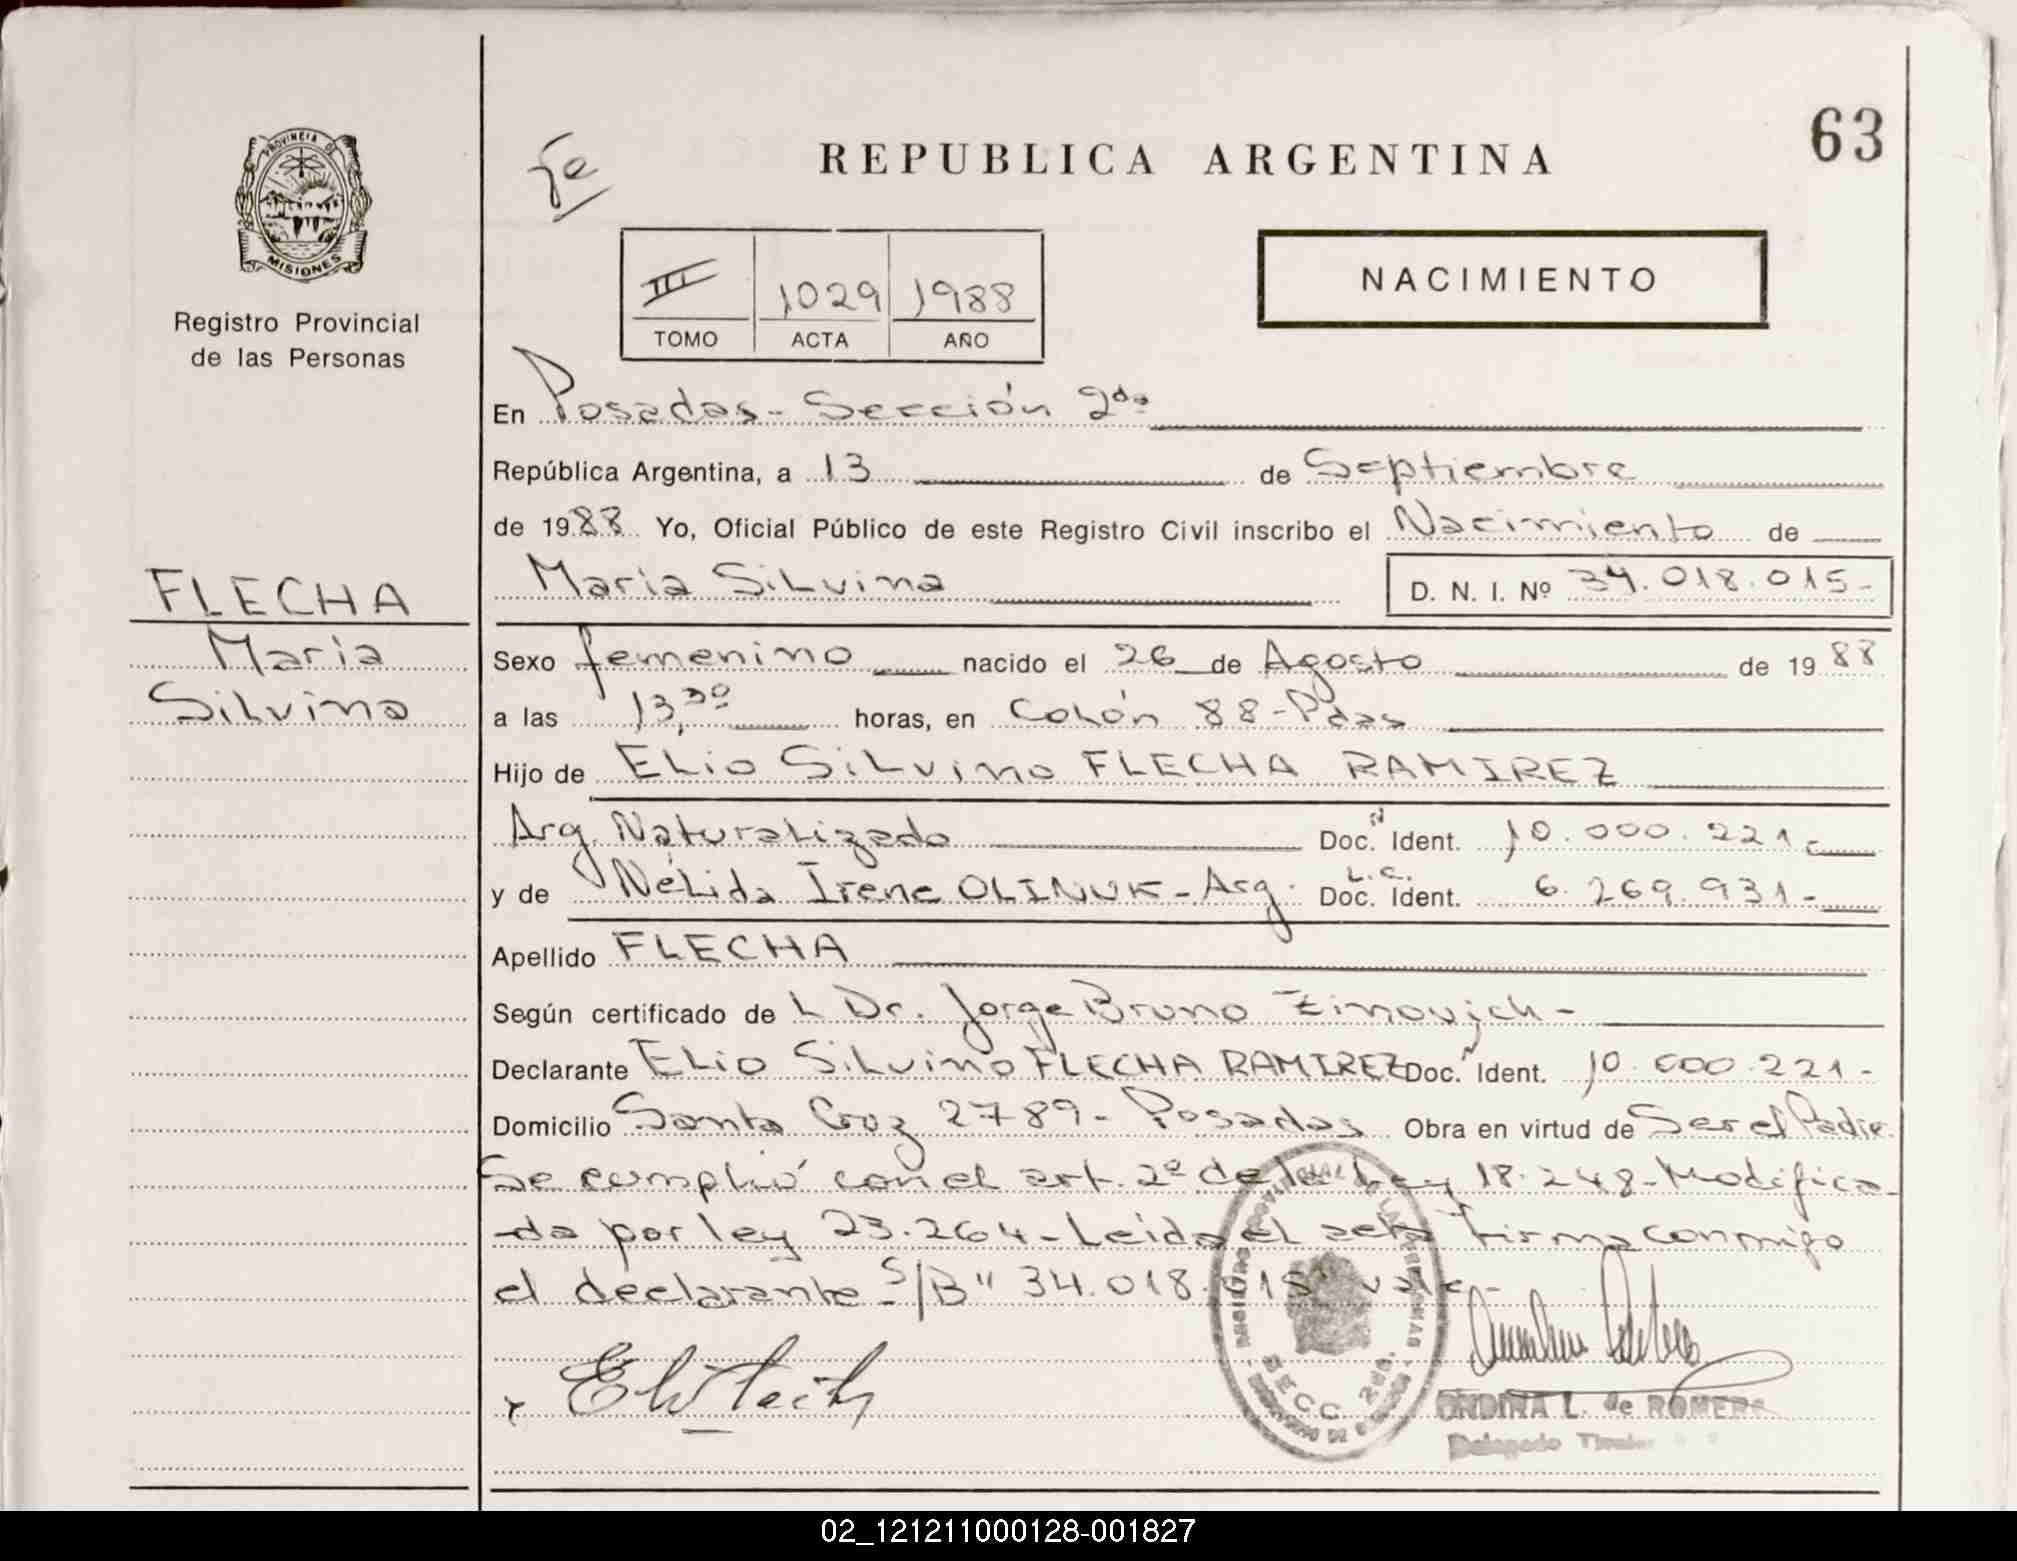 PROVINCIA DE
MISIONES
Registro Provincial
de las Personas
FLECHA
Maria
Silvina
REPUBLICA ARGENTINA
63
III 1029 1988
TOMO ACTA AÑO
NACIMIENTO
En Posadas - Sección 2da
República Argentina, a 13 de Septiembre
de 1988 Yo, Oficial Público de este Registro Civil inscribo el Nacimiento de
Maria Silvina D. N. I. Nº 34.018.015-
Sexo femenino nacido el 26 de Agosto de 1988
a las 13,30 horas, en Colón 88 - Pdas
Hijo de Elio Silvino FLECHA RAMIREZ
Arg. Naturalizado Doc. Ident. 10.000.221
y de Nélida Irene OLINUK - Arg. L.C. Doc. Ident. 6.269.931-
Apellido FLECHA
Según certificado de L Dr. Jorge Bruno Zimovich -
Declarante Elio Silvino FLECHA RAMIREZ Doc. Ident. 10.000.221-
Domicilio Santa Cruz 2789 - Posadas Obra en virtud de Ser el Padre
Se cumplió con el art. 2º de la Ley 18.248 - Modifica-
da por ley 23.264 - Leida el acta firma conmigo
el declarante - S/B" 34.018.015" vale -
SECC. 2da.
ONDINA L. de ROMERO
Delegado Titular
02_121211000128-001827